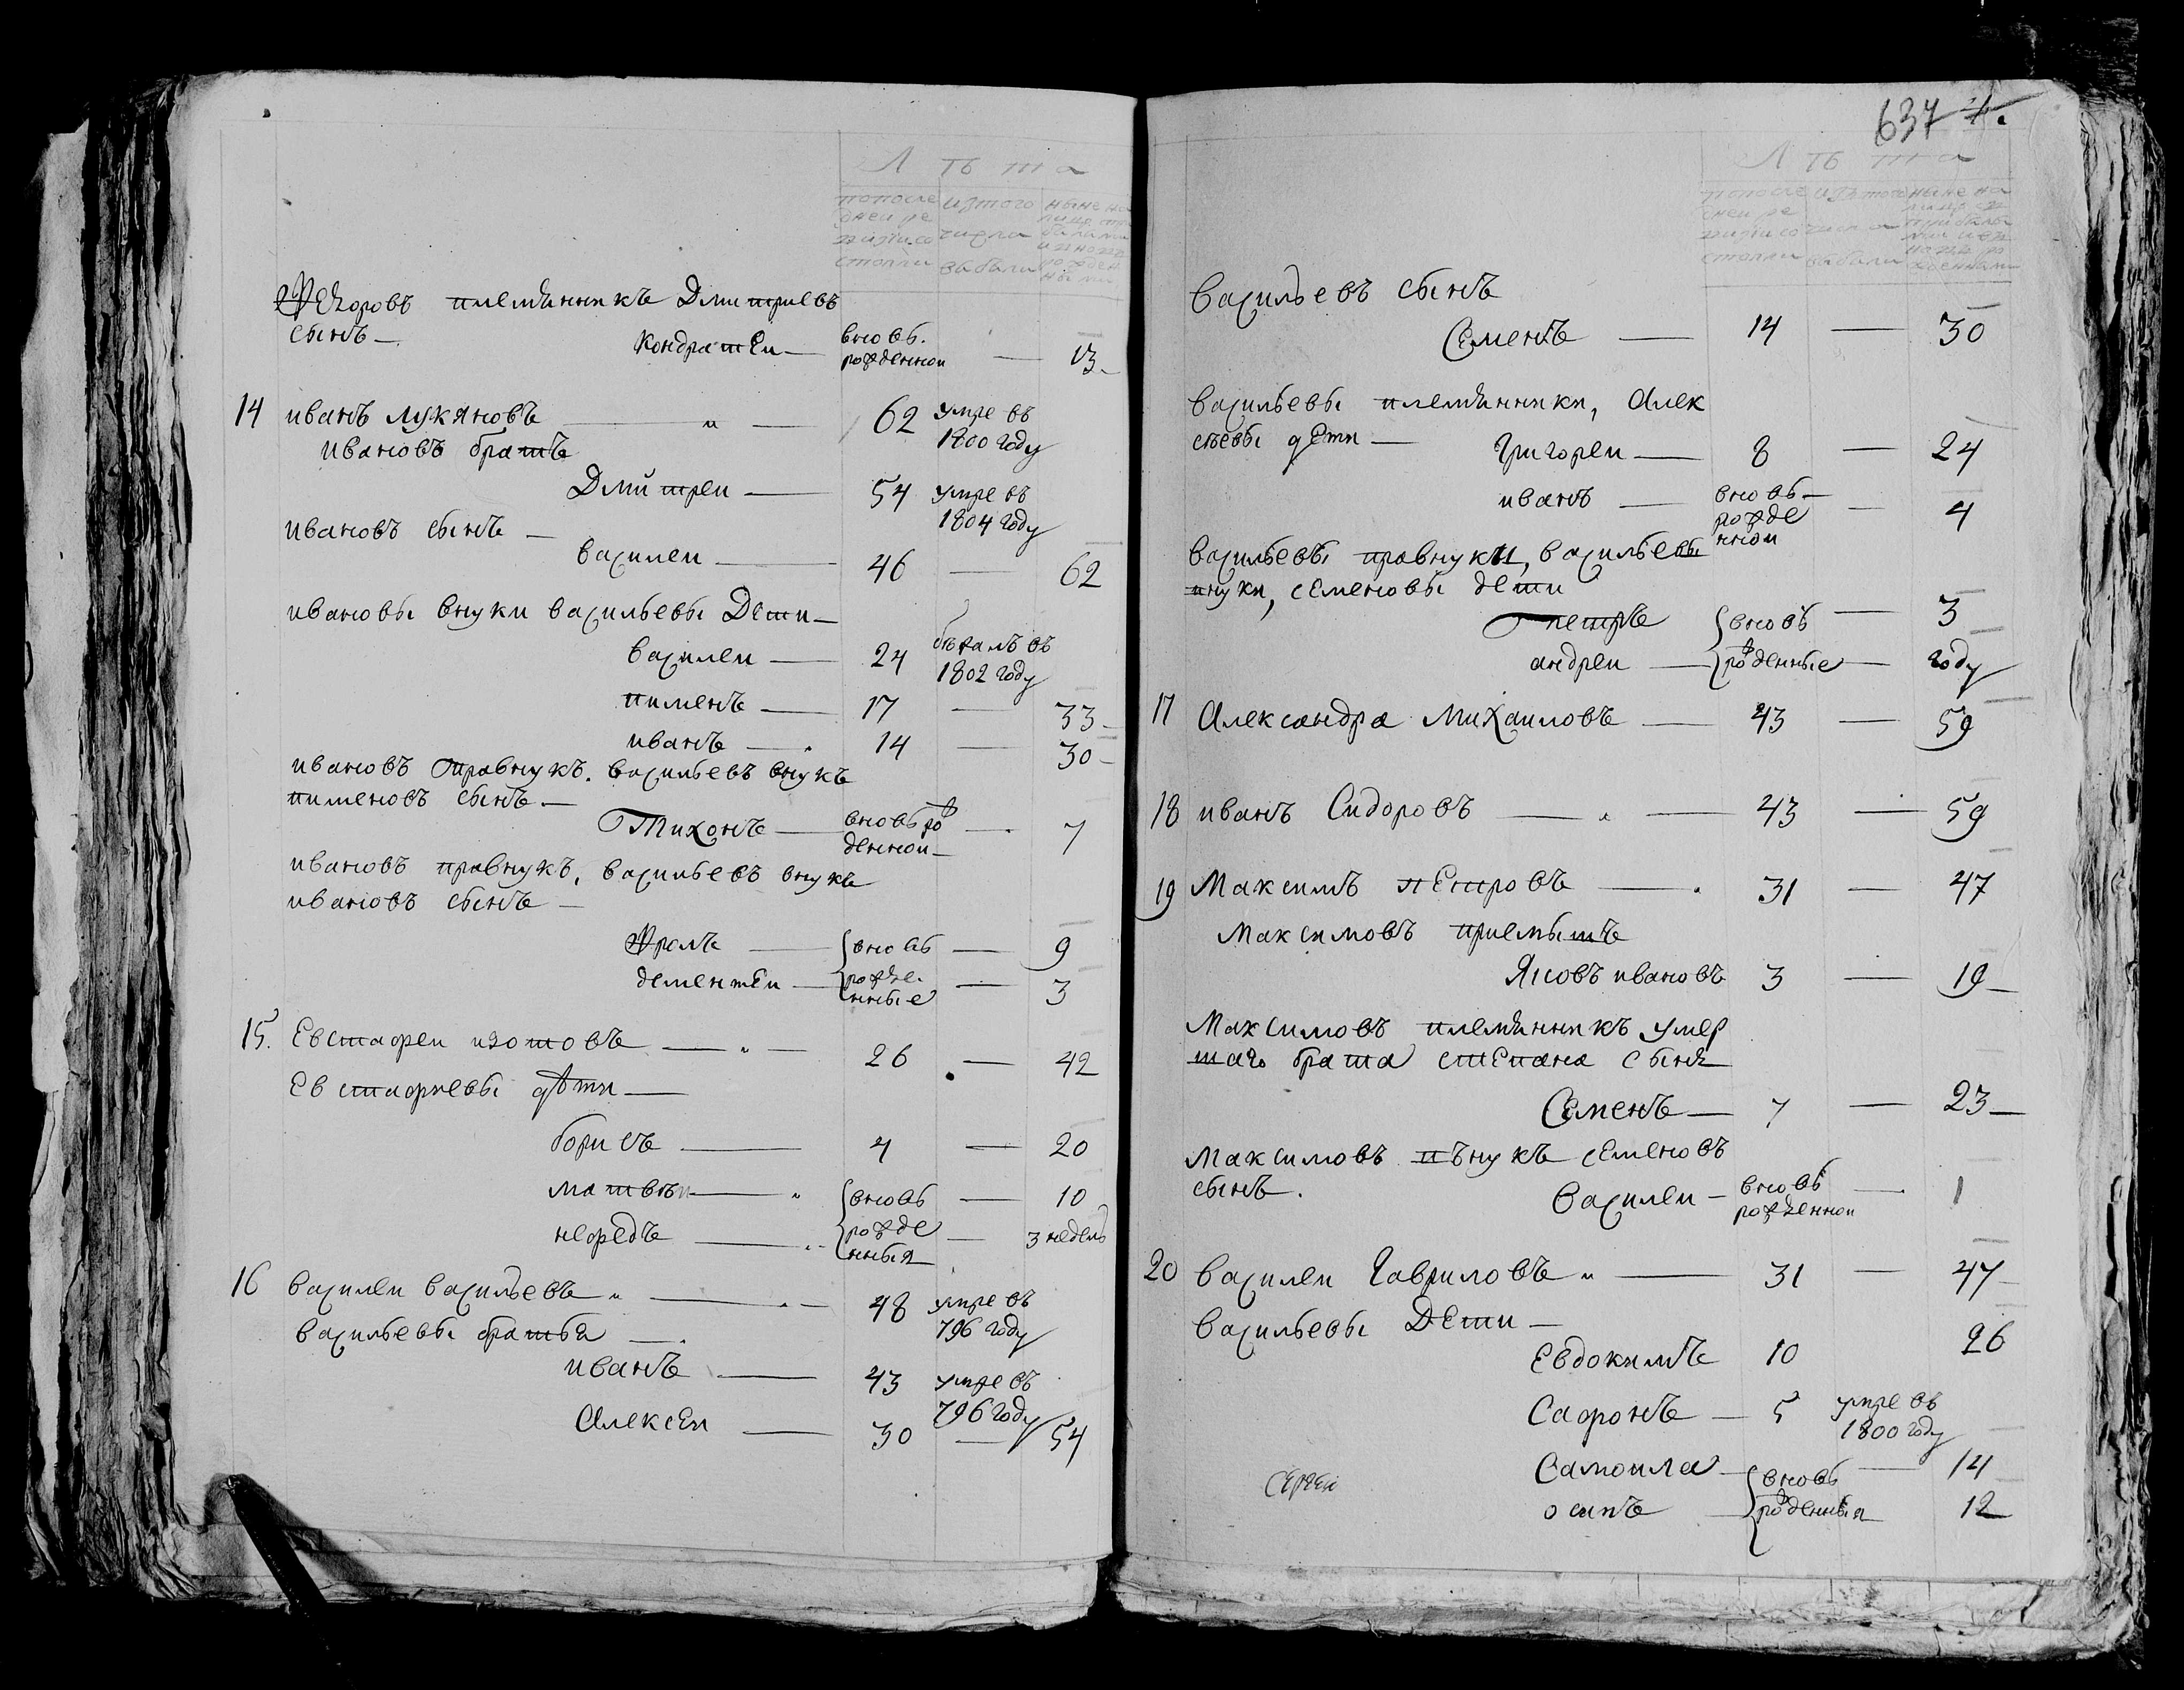 Л ѣ т а
попоследнеи ревизии состояли
изтого числа выбыли
ныне на лицо
Федоровъ племянникъ Дмитриевъ
сынъ — кондратеи — вновь рожденнои — 13
14 иванъ лукяновъ — 62 умре въ 1800 году
ивановъ братъ
Дмитреи — 54 умре въ 1804 году
ивановъ сынъ —
василеи — 46 — 62
ивановы внуки васильевы Дети —
василеи — 24 бежалъ въ 1802 году
пименъ — 17 — 33
иванъ — 14 — 30
ивановъ правнукъ, васильевъ внукъ
пименовъ сынъ —
Тихонъ — вновь рожденнои — 7
ивановъ правнукъ, васильевъ внукъ
ивановъ сынъ —
Фролъ — вновь — 9
дементеи — рожденные — 3
15. Евстафеи изотовъ — 26 — 42
Евстафиевы дѣти —
борисъ — 4 — 20
матвѣи — вновь — 10
нефедъ — рожденныя — 3 недель
16 василеи васильевъ — 48 умре въ 796 году
васильевы братья —
иванъ — 43 умре въ 796 году
Алексеи — 30 — 54
637
Л ѣ т а
попоследнеи ревизии состояли
изтого числа выбыли
ныне на лицо
васильевъ сынъ
Семенъ — 14 — 30
васильевы племянники, Алек
сѣевы дети — Григореи — 8 — 24
иванъ — вновь рожденнои — 4
васильевы правнуки, васильевы
внуки, семеновы дети
петръ вновь — 3
андреи — рожденные — году
17 Александра Михаиловъ — 43 — 59
18 иванъ Сидоровъ — 43 — 59
19 Максимъ петровъ — 31 — 47
Максимовъ приемышъ
Яковъ ивановъ 3 — 19
Максимовъ племянникъ умер
шаго брата степана сынъ
Семенъ — 7 — 23
Максимовъ внукъ семеновъ
сынъ. Василеи — вновь рожденнои — 1
20 василеи Гавриловъ — 31 — 47
васильевы Дети —
Евдокимъ 10 26
Сафонъ — 5 умре въ 1800 году
Самоила — вновь — 14
осипъ — рожденныя 12
Сергеи